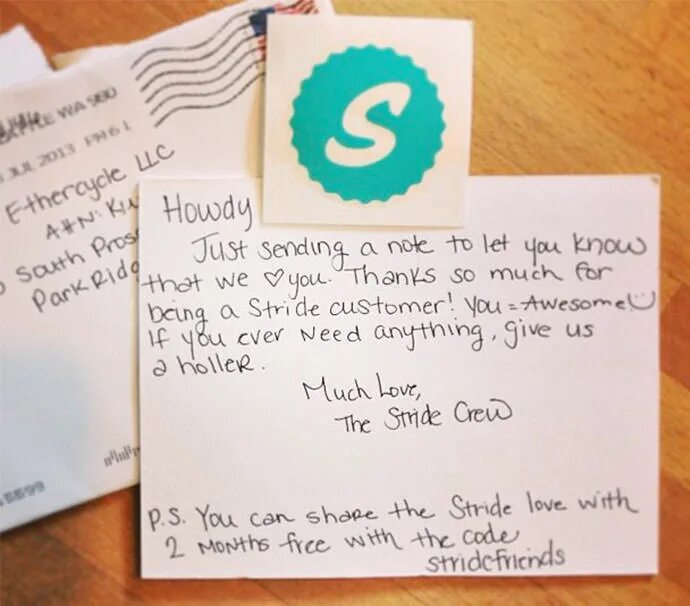 SEATTLE WA 980
JUL 2013 PM 6 L
Ethercycle LLC
South Pros
Park Ridg
S
Howdy
Just sending a note to let you know
that we ♡ you. Thanks so much for
being a Stride customer! You = Awesome!
If you ever need anything, give us
a holler.
Much Love,
The Stride Crew
P.S. You can share the Stride love with
2 months free with the code
stridefriends